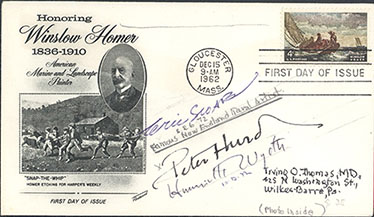 Honoring
Winslow Homer
1836-1910
American
Marine and Landscape
Painter
"SNAP-THE-WHIP"
HOMER ETCHING FOR HARPER'S WEEKLY
FIRST DAY OF ISSUE
GLOUCESTER
DEC 15
9-AM
1962
MASS.
4¢
FIRST DAY OF ISSUE
Famous New England Naval Artist
Peter Hurd
Henriette Wyeth
Irving O. Thomas, MD.
425 N Washington St.,
Wilkes-Barre, Pa.
(Photo inside)